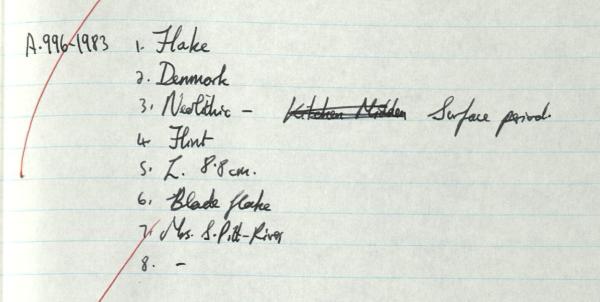 A.996-1983 1. Flake
2. Denmark
3. Neolithic - Kitchen Midden Surface period.
4. Flint
5. L. 8.8cm.
6. Blade flake
7. Mrs. S. Pitt-River
8. -